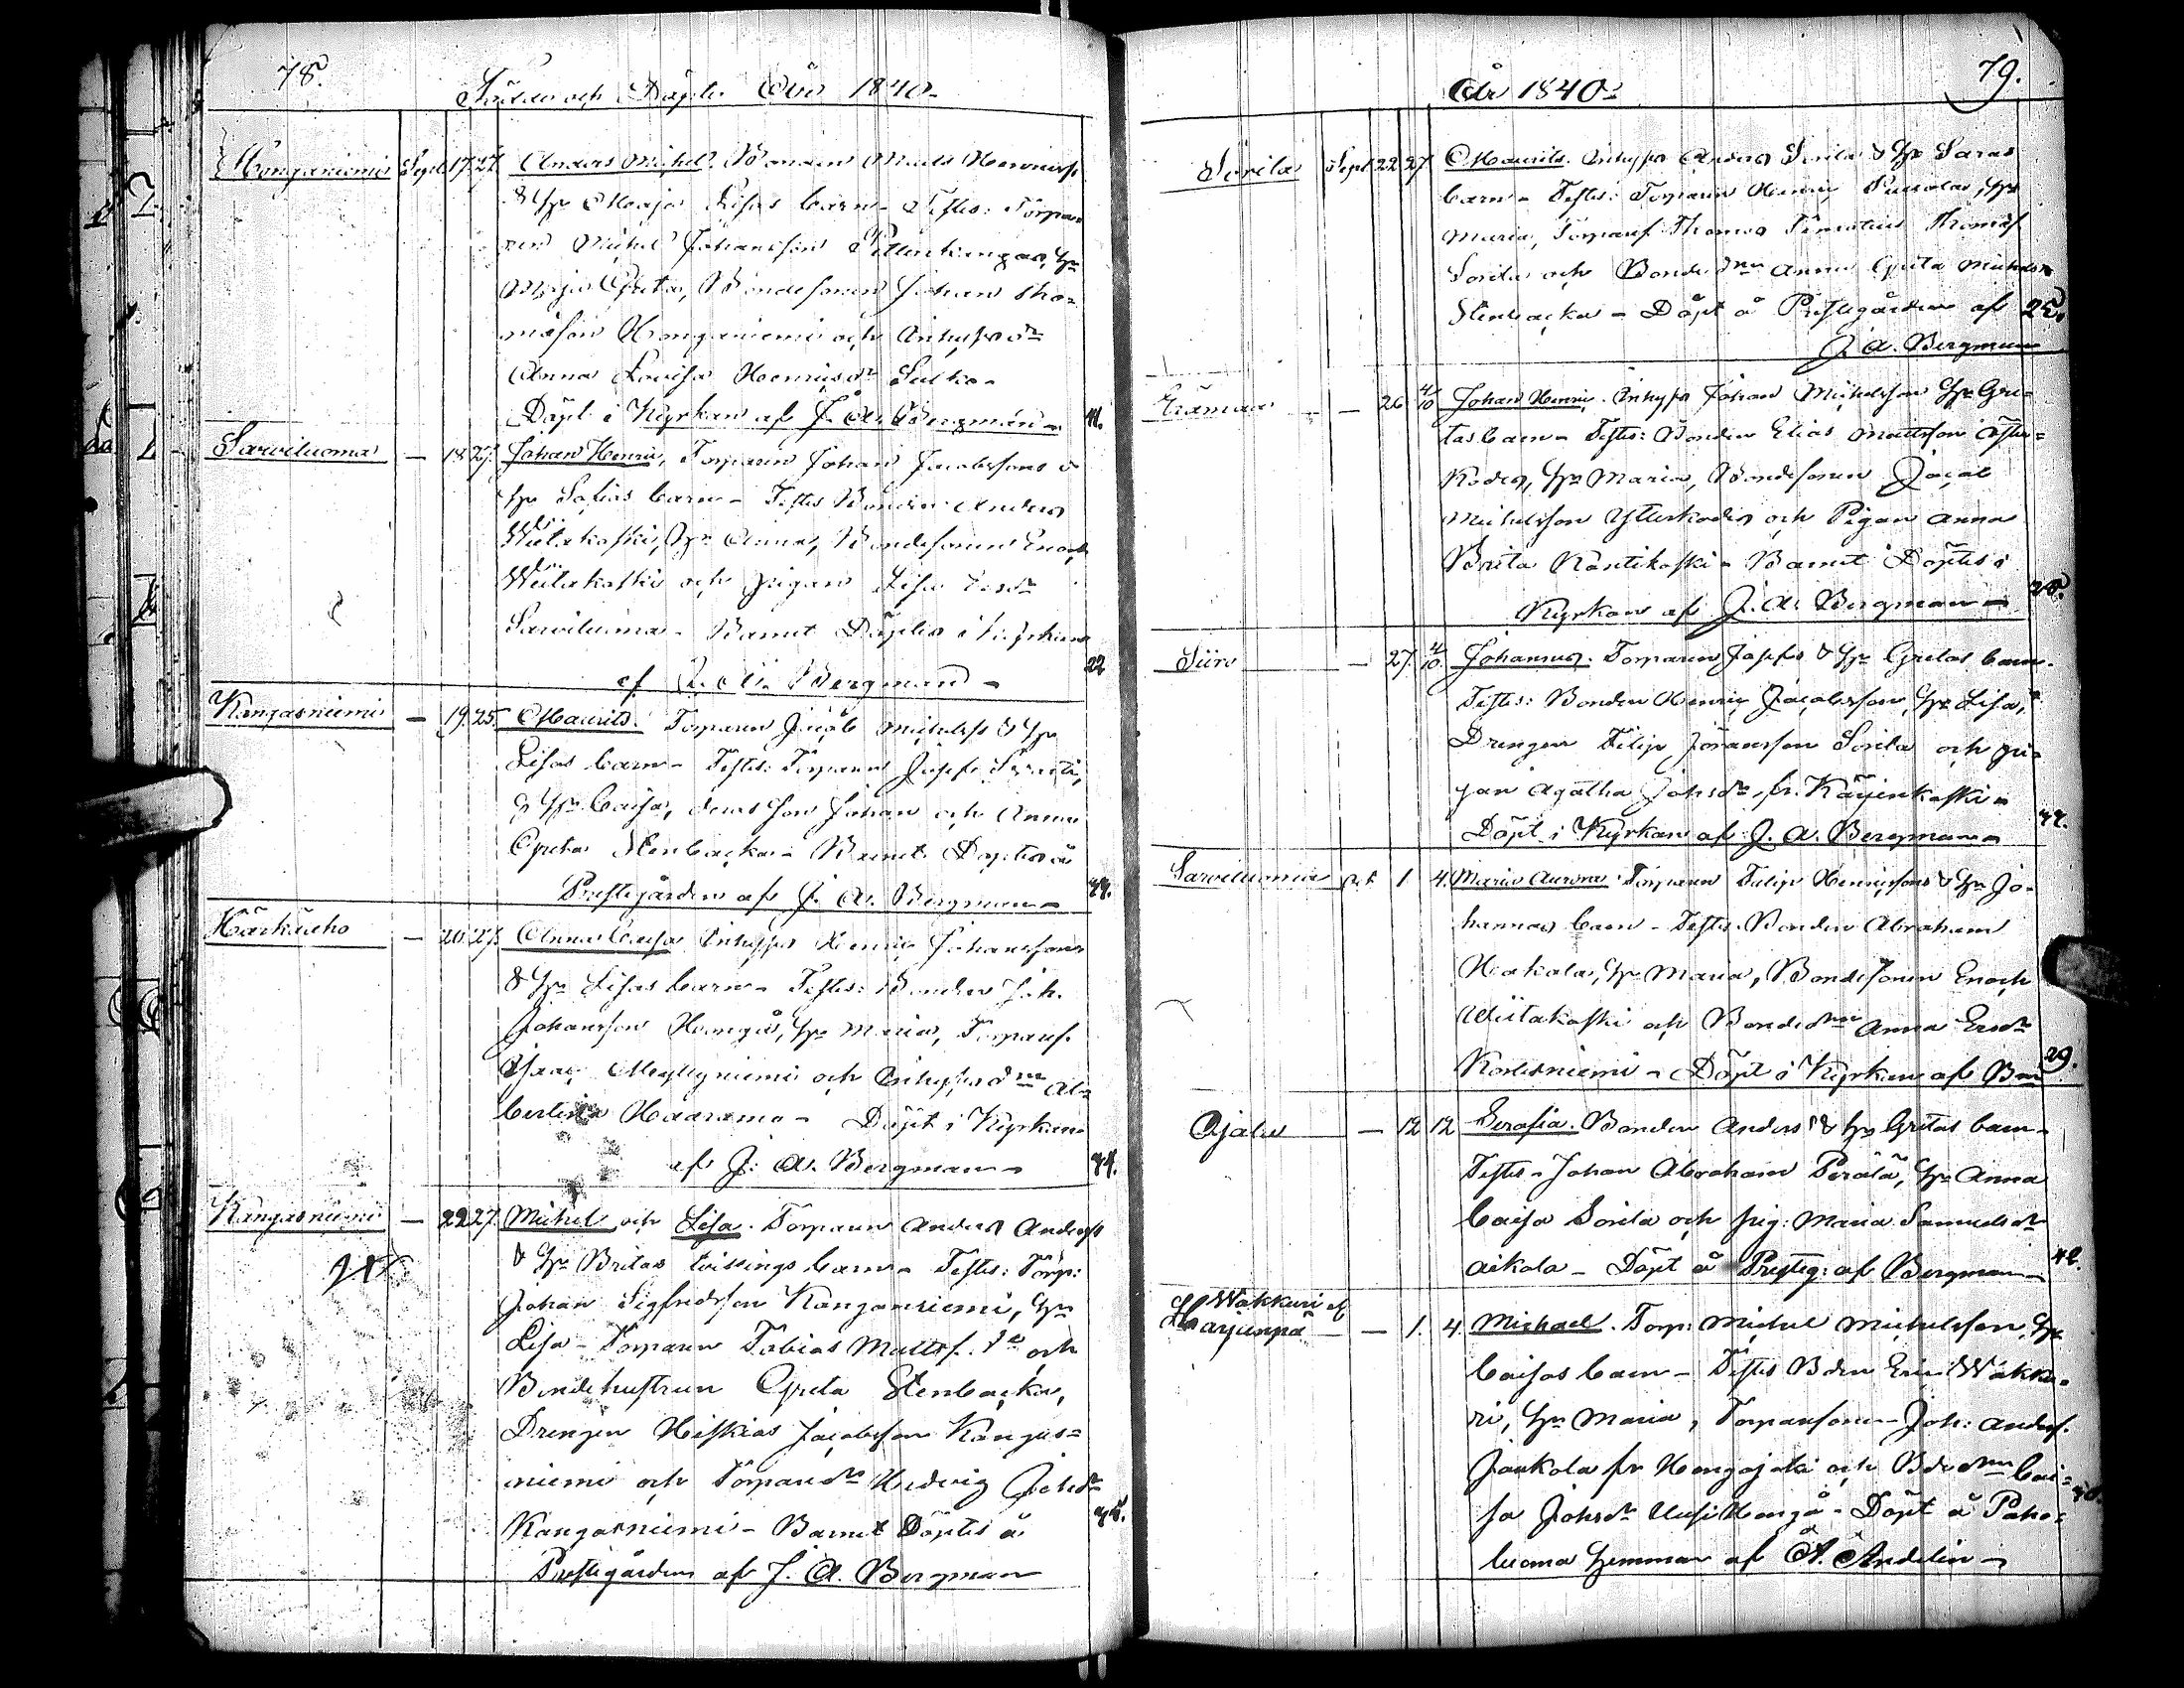 78.
Födde och Döpte År 1840-
Honganiemi Sept. 17. 27. Anders Michel. Bonden Matts Henricss.
& Hu Maja Lisas barn - Testes: Torpa-
ren Michel Johansson Pillinkangas, Hu
Maja Greta, Bondesonen Johan Tho-
masson Honganiemi och Inhyses dr
Anna Lovisa Henricsdr Sulko-
Döpt i Kyrkan af J. A. Bergman - 41.
Sarviluoma - 18. 27. Johan Henric, Torparen Johan Jacobssons &
Hu Sofias barn - Testes Bonden Anders
Wiitakoski, Hu Anna, Bondesonen Enoch
Wiitakoski och pigan Lisa
Sarviluoma - Barnet Döptes i Kyrkan
af J. A. Bergman - 22
Kangasniemi - 19. 25. Maurits. Torparen Jacob Michelss & Hu
Lisas barn - Testes: Torparen Josef
& Hu Caisa, deras son Johan och Anna
Greta Stenbacka - Barnet Döptes å
Prestegården af J. A. Bergman -
Härkäeho - 20. 27. Anna Caisa Inhyses Henric Johanssons
& Hu Lisas barn - Testes: Bonden Joh.
Johansson Hongis, Hu Maria, Torpares.
Isac Myllyniemi och Inhyses drn Al-
bertina Haarama - Döpt i Kyrkan
af J. A. Bergman -
Kangasniemi - 22 27. Michel och Lisa. Torparen Anders Anderss
& Hu Britas tvillings barn - Testes: Torp:
Johan Sigfredsson Kangasniemi, Hu
Lisa - Torparen Tobias Mattss. och
Bondehustrun Greta Stenbacka,
Drengen Hiskias Jacobsson Kangas=
niemi och Torparedr Hedvig Johsdr
Kangasniemi - Barnet Döptes å
Prestegården af J. A. Bergman
79.
År 1840-
Sorila Sept 22 27. Maurits. Inhyses Anders Sorila & Hu Saras
barn - Testes: Torparen Henric Hu
Maria, Torpares. Thomas Thomass
Sorila och Bonde drn Anna Greta Michelsdr
Stenbacka - Döpt å Prestegården af 25.
J. A. Bergman
- 26 4/10 Johan Henric. Inhyses Johan Michelsson Hu Gre=
tas barn - Testes: Bonden Elias Mattsson Ytter=
kodes, Hu Maria, Bondesonen Jacob
Michelsson Ytterkodes och Pigan Anna
Brita Kantikoski - Barnet Döptes i
Kyrkan af J. A. Bergman -
Siiro - 27. 4/10. Johannes. Torparen Josefs & Hu Gretas barn.
Testes: Bonden Henric Jacobsson, Hu Lisa,
Drengen Filip Johansson Sorila och pi-
gan Agatha Johsdr fr. Käyenkoski -
Döpt i Kyrkan af J. A. Bergman -
Sarviluoma Oct. 1 4. Maria Aurora Torparen Filip Henricssons & Hu Jo-
hannas barn - Testes. Bonden Abraham
Hakala, Hu Maria, Bondesonen Enoch
Wiitakoski och Bonde drn Anna Ersdr
Koskisniemi - Döpt i Kyrkan af Bn 29.
Ojala - 12 12 Serafia. Bonden Anders & Hu Gretas barn -
Testes - Johan Abraham Perälä, Hu Anna
Caisa Sorila och pig: Maria Samuelsdr
Aikala - Döpt å Presteg: af Bergman - 42.
Wakkuri af
Harjunpä - 1. 4. Michael. Torp: Michel Michelsson, Hu
Caisas barn - Testes Bden Eric Wakku-
ri, Hu Maria, Torparesonen Joh: Anderss.
Jaukola fr Hongajoki och Bdedrn Cai=
sa Johsdr Uusi Hongo - Döpt å Paho=
luoma Hemman af A. Andelin -